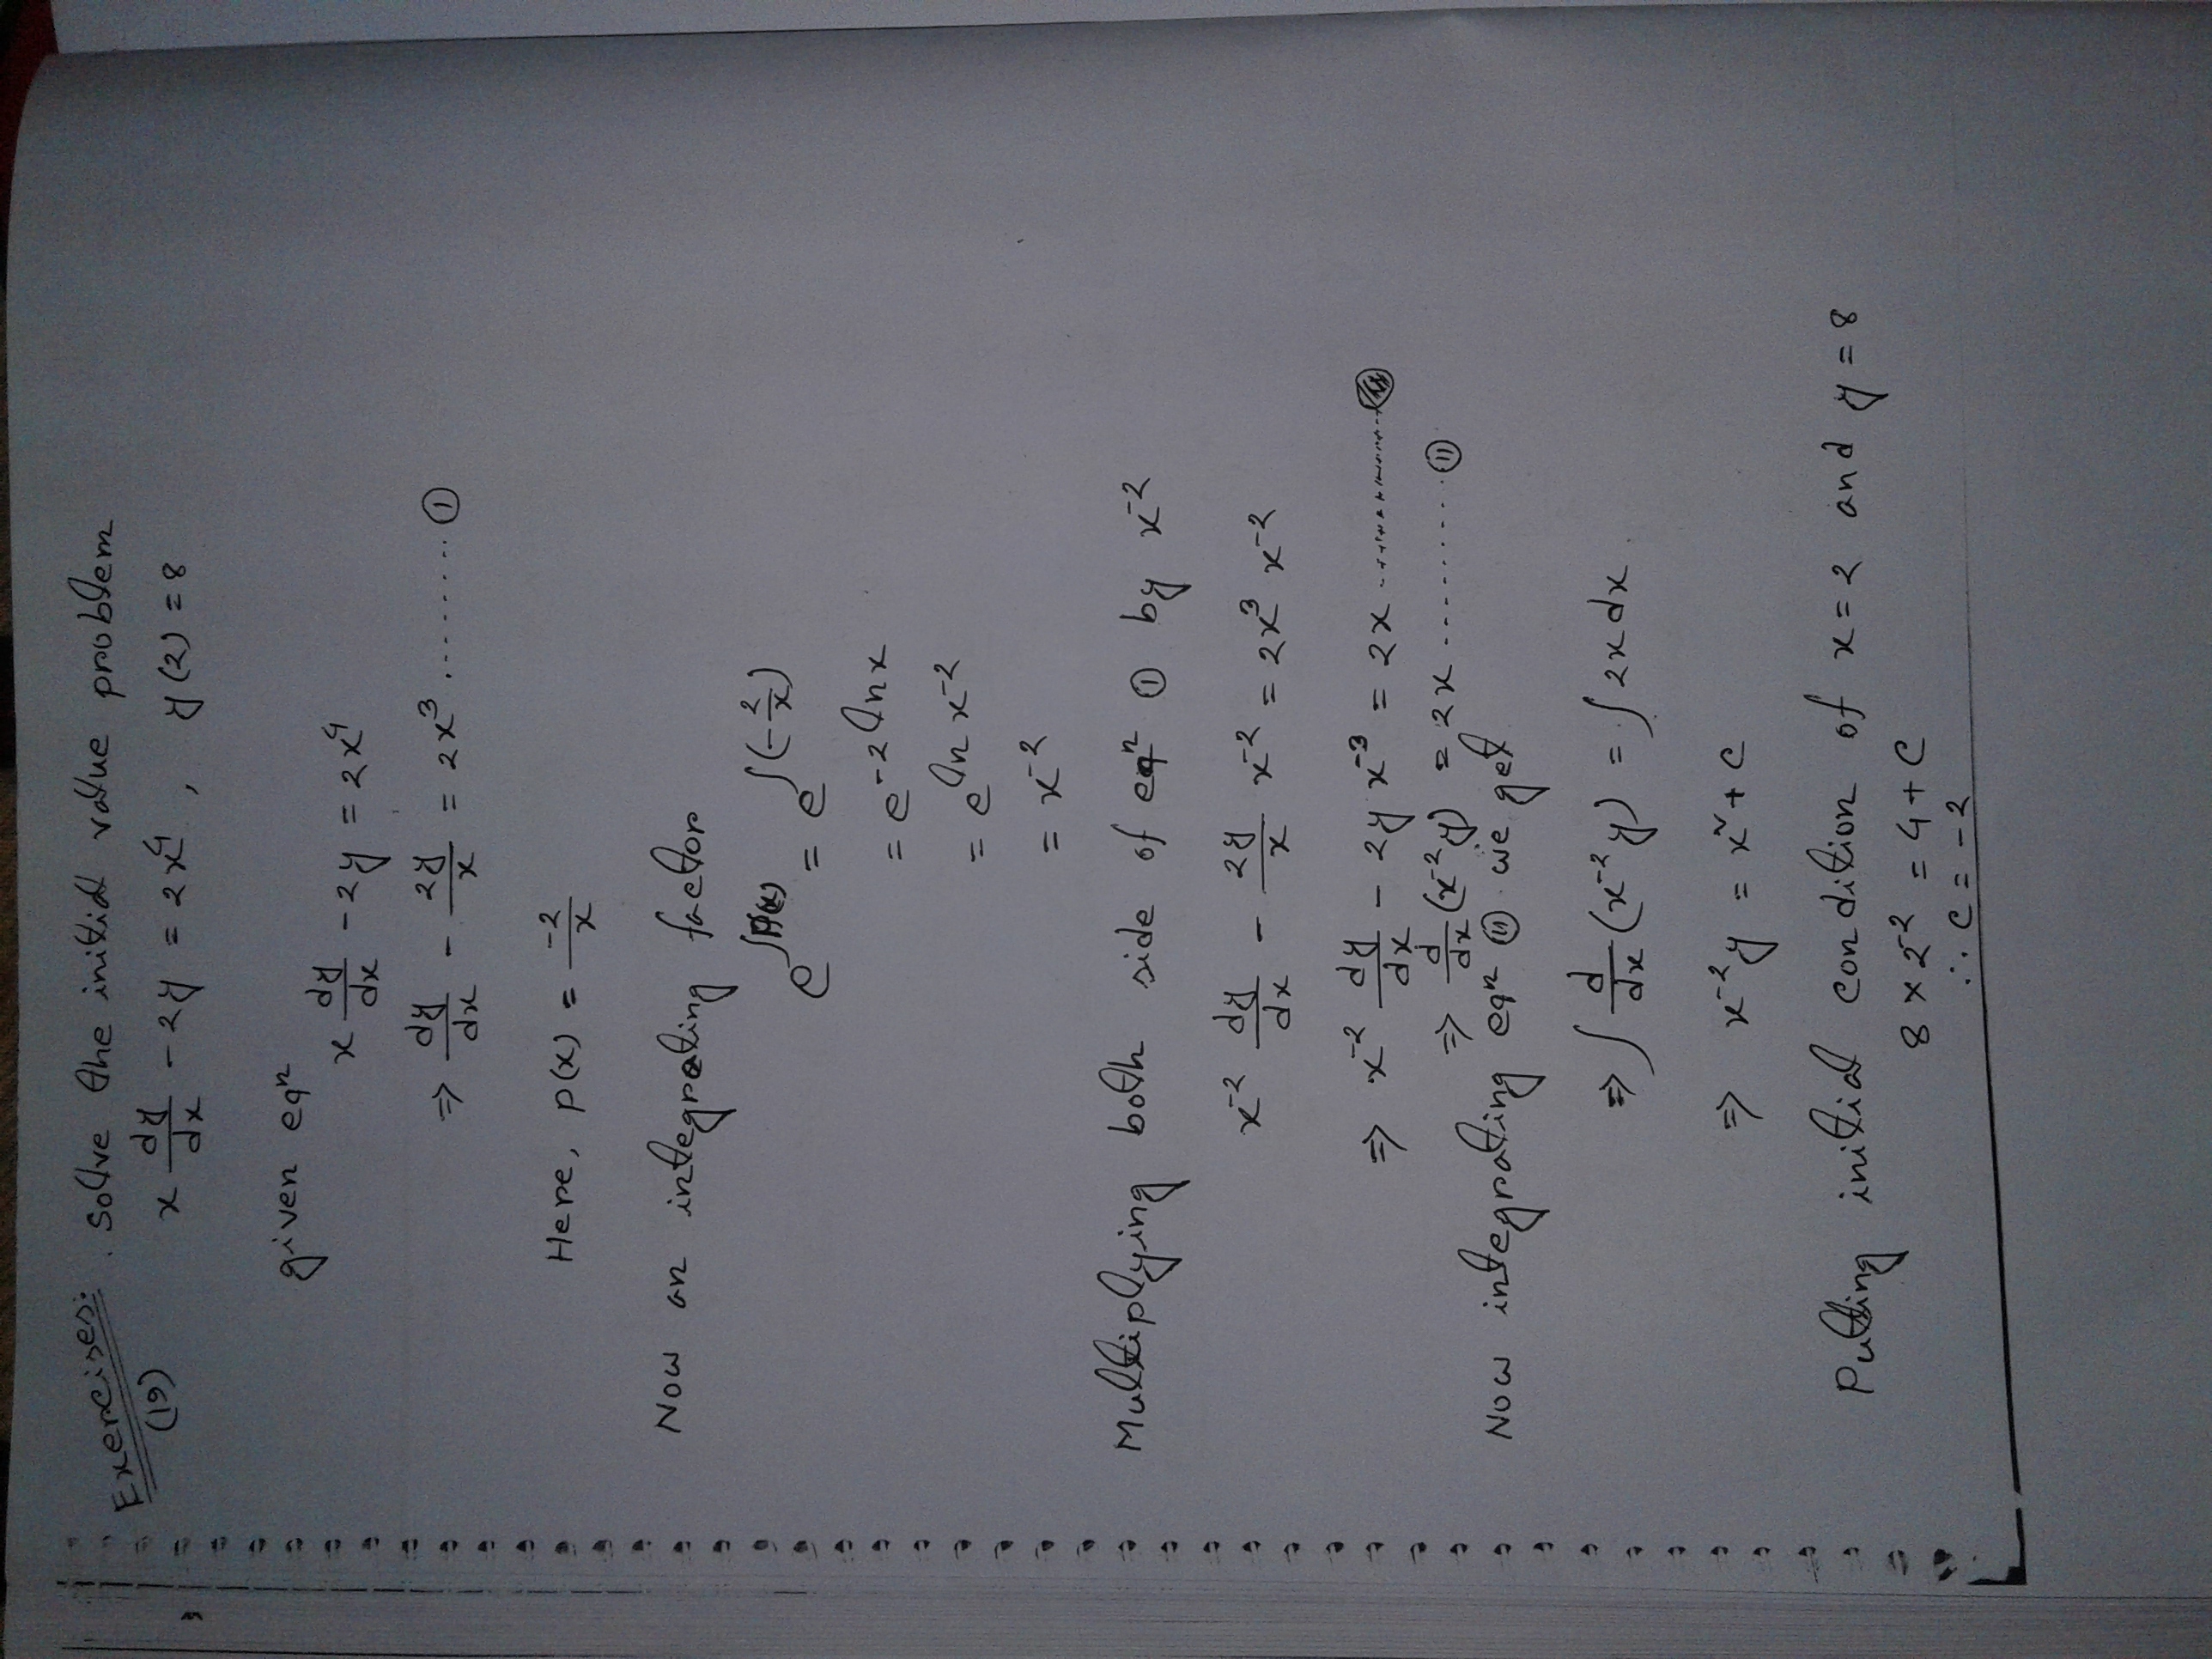 Exercises: . Solve the initial value problem
(19) x dy/dx - 2y = 2x⁴ , y(2) = 8
given eqⁿ
x dy/dx - 2y = 2x⁴
⇒ dy/dx - 2y/x = 2x³ ........ ①
Here, p(x) = -2/x
Now an integrating factor
e^∫P(x) = e^∫(-2/x)
= e^-2 ln x
= e^ln x⁻²
= x⁻²
Multiplying both side of eqⁿ ① by x⁻²
x⁻² dy/dx - 2y/x x⁻² = 2x³ x⁻²
⇒ x⁻² dy/dx - 2y x⁻³ = 2x ..................
⇒ d/dx (x⁻²y) = 2x .......... ⑪
Now integrating eqⁿ ⑪ we get
⇒ ∫ d/dx (x⁻²y) = ∫ 2x dx
⇒ x⁻²y = x² + c
Putting initial condition of x = 2 and y = 8
8 × 2⁻² = 4 + c
∴ c = -2